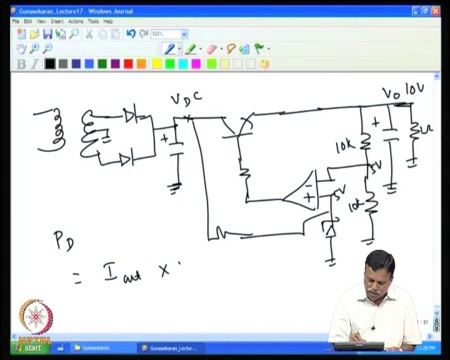 Gunasekaran_Lecture17 - Windows Journal
File Edit View Insert Actions Tools Help
100%
B I
V DC
Vo 10V
10k
5V
5V
10k
PD
= I out x
start
Gunasekaran
Gunasekaran_Lectu...